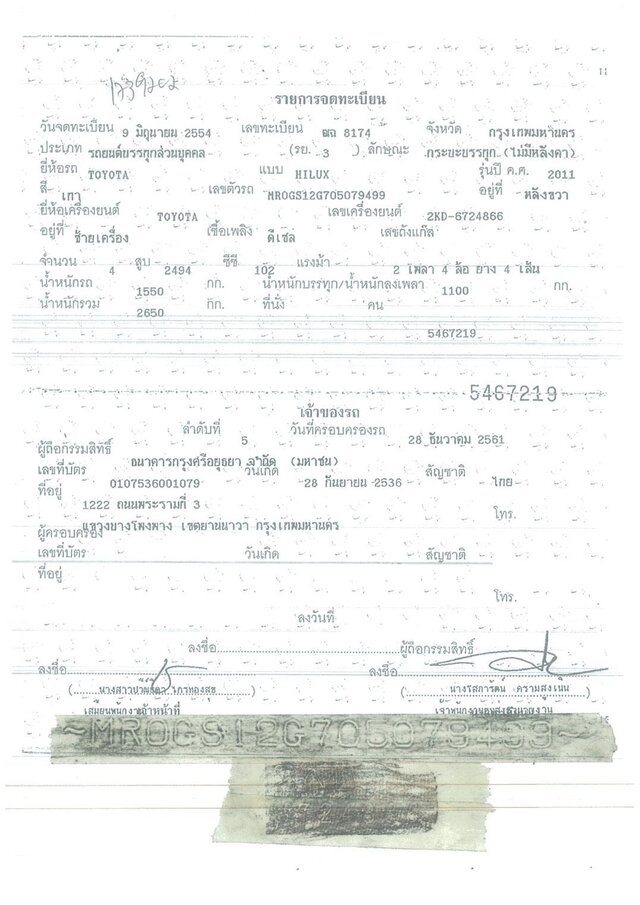 11
รายการจดทะเบียน
วันจดทะเบียน 9 มิถุนายน 2554 เลขทะเบียน ฒฉ 8174 จังหวัด กรุงเทพมหานคร
ประเภท รถยนต์บรรทุกส่วนบุคคล (รย. 3 ) ลักษณะ กระบะบรรทุก (ไม่มีหลังคา)
ยี่ห้อรถ TOYOTA แบบ HILUX รุ่นปี ค.ศ. 2011
สี เทา เลขตัวรถ MROGS12G705079499 อยู่ที่ หลังขวา
ยี่ห้อเครื่องยนต์ TOYOTA เลขเครื่องยนต์ 2KD-6724866
อยู่ที่ ซ้ายเครื่อง เชื้อเพลิง ดีเซล เลขถังแก๊ส
จำนวน 4 สูบ 2494 ซีซี 102 แรงม้า 2 เพลา 4 ล้อ ยาง 4 เส้น
น้ำหนักรถ 1550 กก. น้ำหนักบรรทุก/น้ำหนักลงเพลา 1100 กก.
น้ำหนักรวม 2650 กก. ที่นั่ง คน
5467219
5467219
เจ้าของรถ
ลำดับที่ 5 วันที่ครอบครองรถ 28 ธันวาคม 2561
ผู้ถือกรรมสิทธิ์ ธนาคารกรุงศรีอยุธยา จำกัด (มหาชน)
เลขที่บัตร 0107536001079 วันเกิด 28 กันยายน 2536 สัญชาติ ไทย
ที่อยู่ 1222 ถนนพระรามที่ 3 โทร.
แขวงบางโพงพาง เขตยานนาวา กรุงเทพมหานคร
ผู้ครอบครอง
เลขที่บัตร วันเกิด สัญชาติ
ที่อยู่
โทร.
ลงวันที่
ลงชื่อ ผู้ถือกรรมสิทธิ์
ลงชื่อ ลงชื่อ
(นางสาว ไกรทองสุข) (นางรสภารัตน์ ครามสูงเนิน)
~MROGS12G705079499~